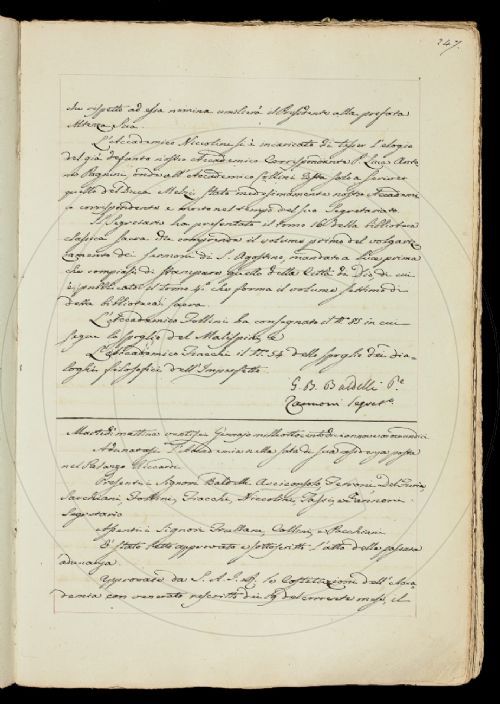 247.
che rispetto ad essa nomina umilierà il Presidente alla prefata
Altezza Sua.
L'Accademico Niccolini si è incaricato di tesser l'elogio
del già defunto nostro Accademico Corrispondente P. Luca Anto-
nio Pagnini, onde all'Accademico Collini resta solo a scrivere
quello del Duca Melzi stato medesimamente nostro Accademi-
co corrispondente e morto nel tempo del suo Segretariato.
Il Segretario ha presentato il tomo 16 della biblioteca
classica sacra che comprende il volume primo del volgariz-
zamento dei sermoni di S. Agostino, mandato a luce prima
che compiasi di stampare quello della Città di Dio, di cui
è pubblicato il tomo 4.° che forma il volume settimo di
detta biblioteca sacra.
L'Accademico Follini ha consegnato il N.° 85 in cui
segue lo spoglio del Malespini, e
L'Accademico Fiacchi il N.° 54 dello spoglio dei dia-
loghi filosofici dell'Imperfetto
G. B. Baldelli P.e
Zannoni Segret.o
Martedì mattina ventisei Gennajo mille ottocento
Adunatasi l'Accademia nella sala di sua residenza posta
nel Palazzo Riccardi
Presenti i Signori Baldelli Arciconsolo, Ferroni, Del Furia,
Sarchiani, Follini, Fiacchi, Niccolini, e Zannoni
Segretario
Assenti i Signori Frullani, Collini, e Pacchiani
È stato letto approvato e sottoscritto l'atto della passata
adunanza.
Approvate da S. A. I. le Costituzioni dell'Acca-
demia con venerato rescritto dei 19 del corrente mese, il